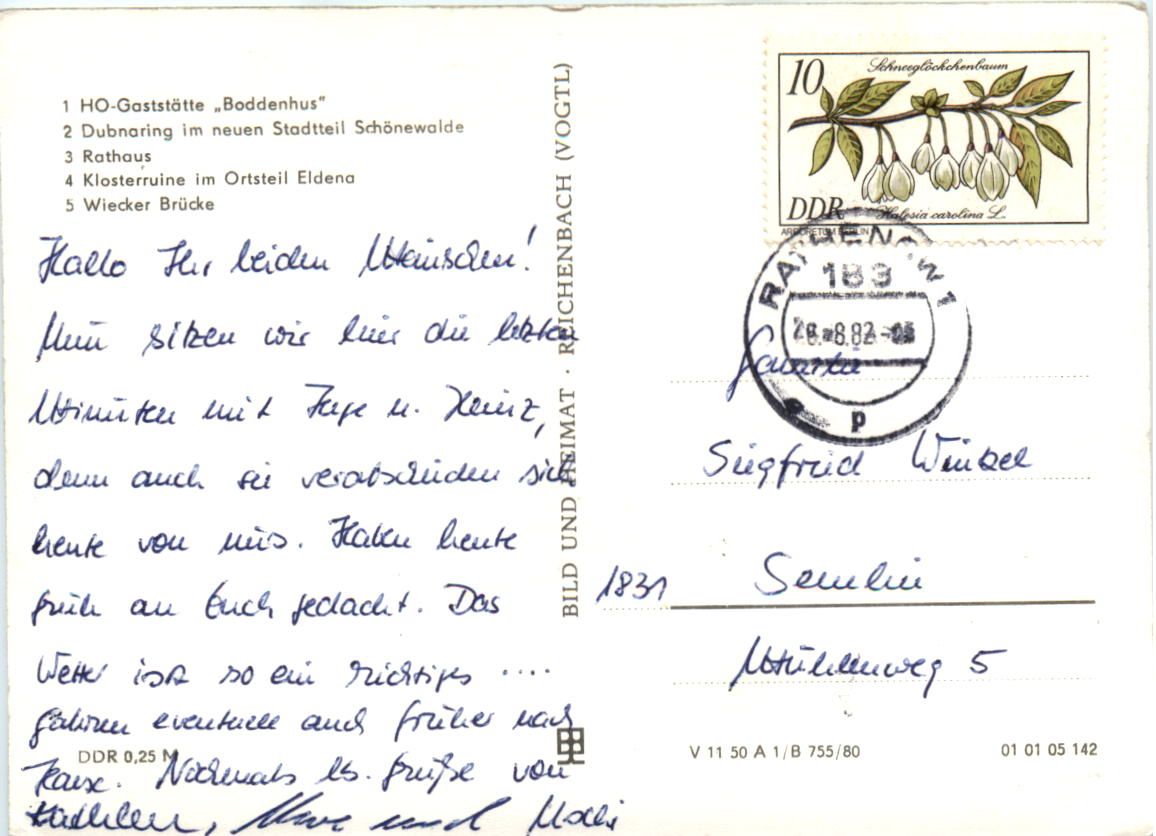 1 HO-Gaststätte „Boddenhus"
2 Dubnaring im neuen Stadtteil Schönewalde
3 Rathaus
4 Klosterruine im Ortsteil Eldena
5 Wiecker Brücke
Hallo Ihr beiden Menschen!
Nun sitzen wir hier die letzten
Minuten mit Inge u. Heinz,
denn auch sie verabschieden sich
heute von uns. Haben heute
früh an Euch gedacht. Das
Wetter ist so ein richtiges ....
fahren eventuell auch früher nach
Hause. Nochmals lb. Grüße von
Kathleen, Uwe und
DDR 0,25 M
BILD UND HEIMAT · REICHENBACH (VOGTL)
10
Schneeglöckchenbaum
DDR
Halesia carolina L.
ARBORETUM BERLIN
RATHENOW 1
183
p
Familie
Siegfried Winkel
1831 Semlin
Mühlenweg 5
V 11 50 A 1/B 755/80
01 01 05 142